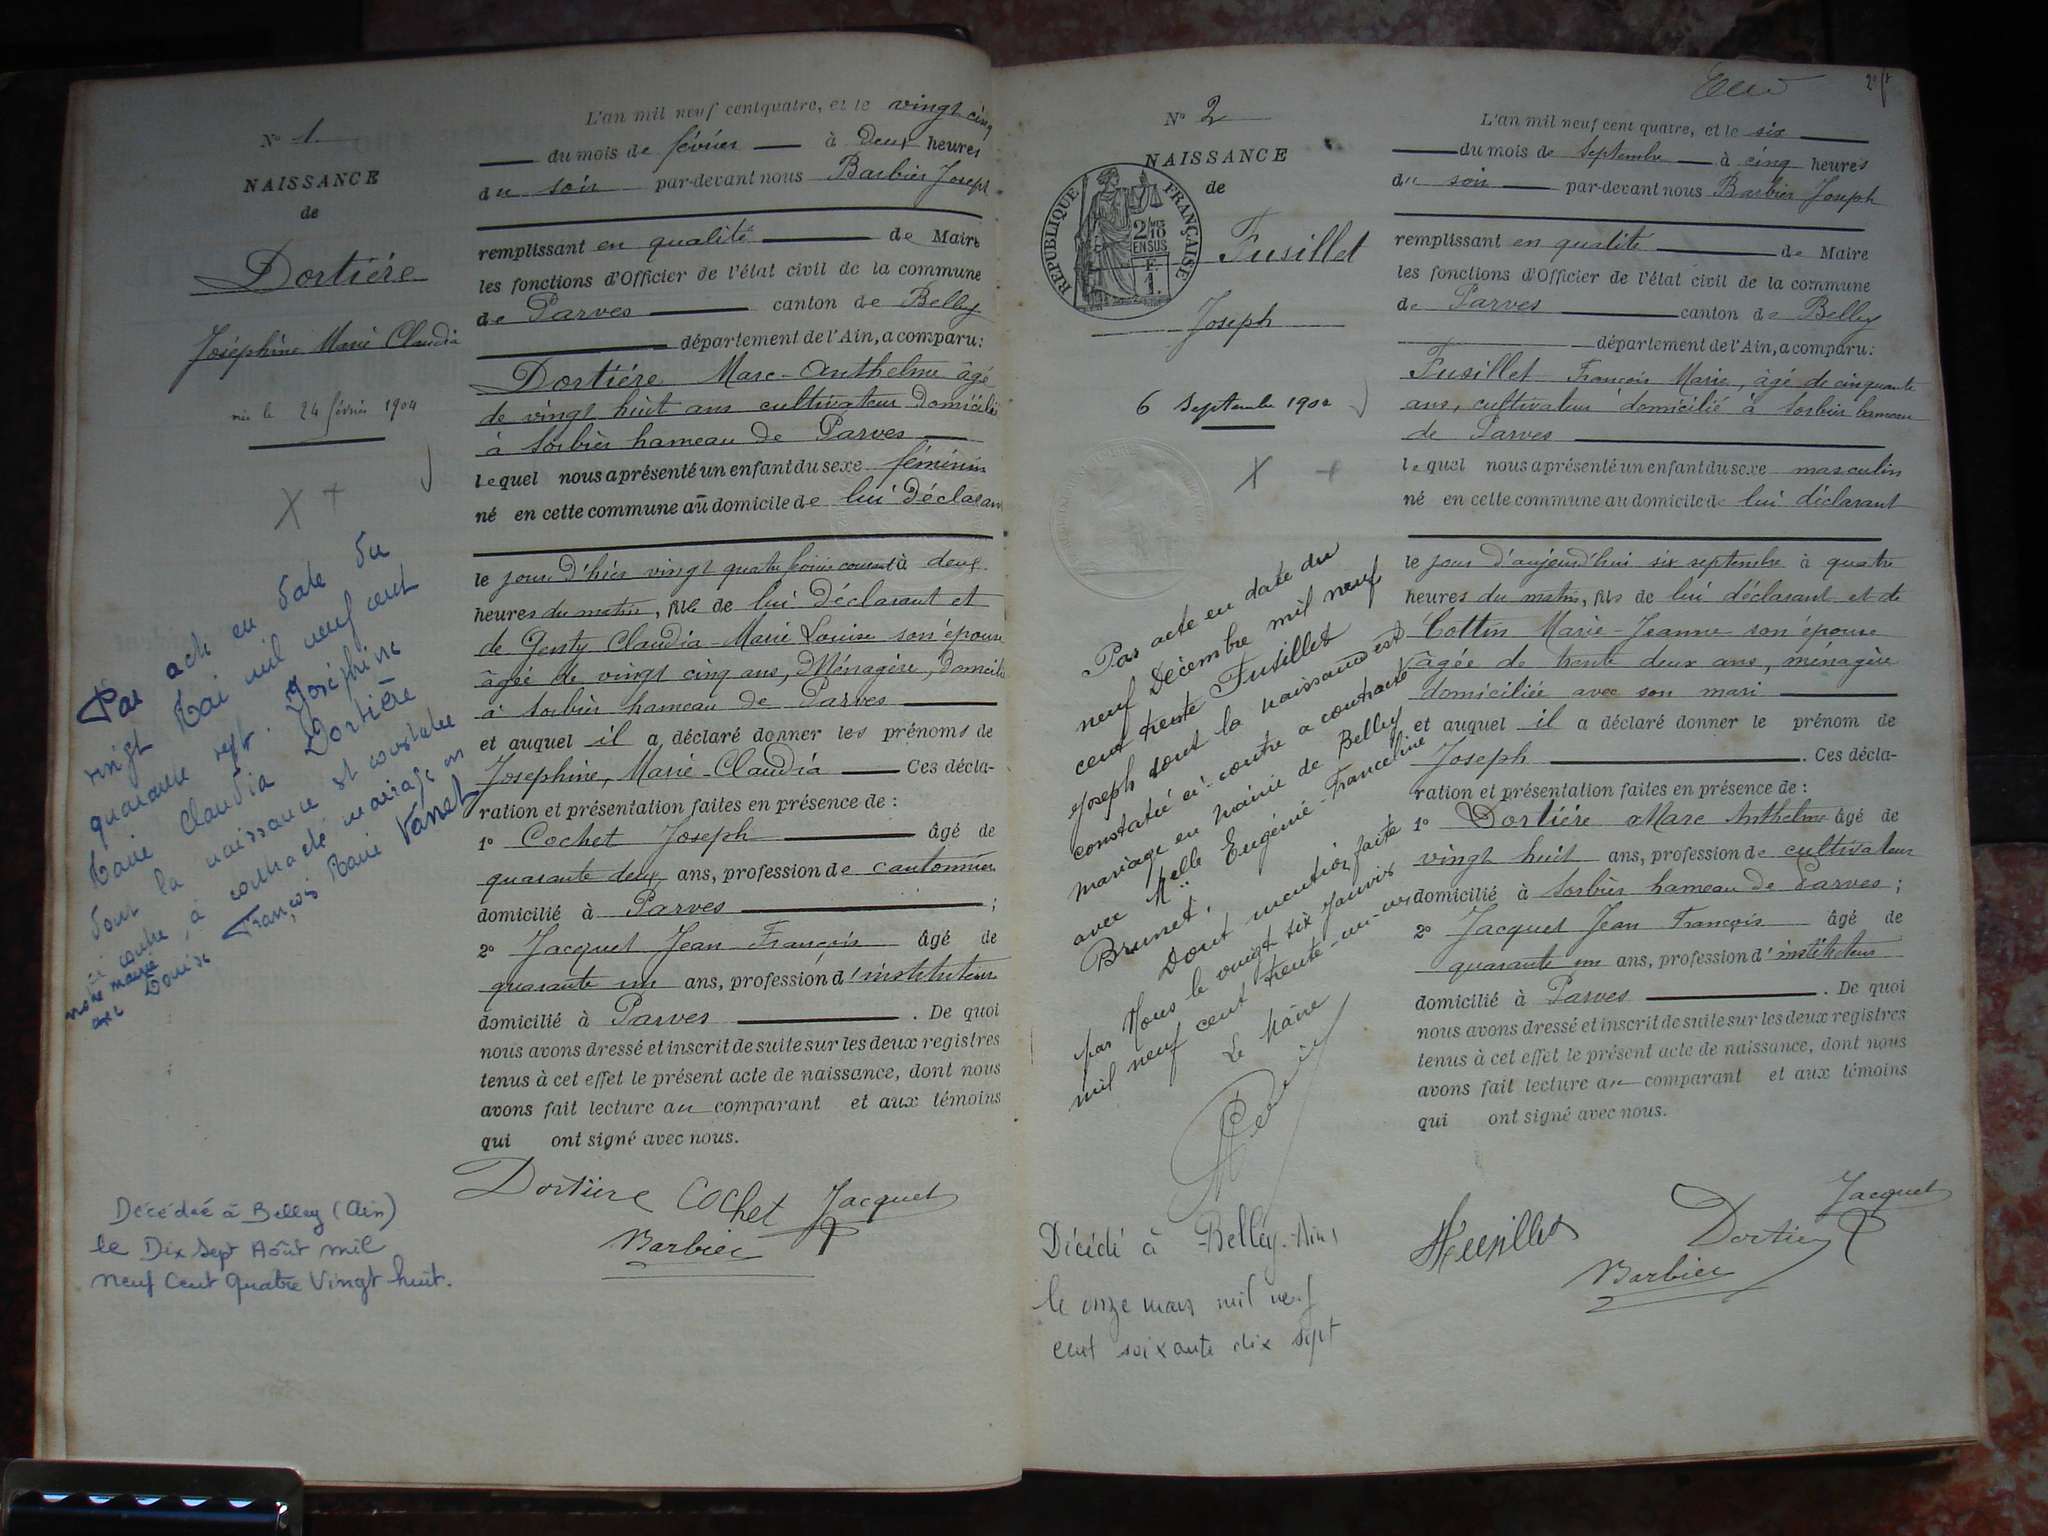 N° 1.
NAISSANCE
de
Dortiére
Joséphine Marie Claudia
née le 24 février 1904
Par acte en date du
vingt Mai mil neuf cent
quarante sept. Joséphine
Marie Claudia Dortière
dont la naissance est constatée
ci contre, a contracté mariage en
notre mairie
avec Louis François Marie Vannet
Décédée à Belley (Ain)
le Dix Sept Août mil
neuf Cent Quatre Vingt huit.
L'an mil neuf cent quatre, et le vingt cinq
du mois de février à deux heures
du soir par-devant nous Barbier Joseph
remplissant en qualité de Maire
les fonctions d'Officier de l'état civil de la commune
de Parves canton de Belley
département de l'Ain, a comparu:
Dortiére Marc-Anthelme âgé
de vingt huit ans cultivateur domicilié
à Sorbier hameau de Parves
lequel nous a présenté un enfant du sexe féminin
né en cette commune au domicile de lui déclarant
le jour d'hier vingt quatre février courant à deux
heures du matin, fille de lui déclarant et
de Genty Claudia-Marie Louise son épouse
âgée de vingt cinq ans, Ménagère, domiciliée
à Sorbier hameau de Parves
et auquel il a déclaré donner les prénoms de
Josephine, Marie-Claudia Ces décla-
ration et présentation faites en présence de :
1° Cochet Joseph âgé de
quarante deux ans, profession de cantonnier
domicilié à Parves ;
2° Jacquet Jean François âgé de
quarante un ans, profession d'instituteur
domicilié à Parves . De quoi
nous avons dressé et inscrit de suite sur les deux registres
tenus à cet effet le présent acte de naissance, dont nous
avons fait lecture au comparant et aux témoins
qui ont signé avec nous.
Dortiere Cochet Jacquet
Barbier
N° 2
NAISSANCE
de
RÉPUBLIQUE FRANÇAISE
2/10
EN SUS
F.
1.
Fusillet
Joseph
6 Septembre 1904
Par acte en date du
neuf Décembre mil neuf
cent trente Fusillet
Joseph dont la naissance est
constatée ci-contre a contracté
mariage en mairie de Belley
avec Melle Eugénie-Franceline
Brunet.
Dont mention faite
par Nous le vingt six janvier
mil neuf cent trente-un
Le Maire
Décédé à Belley-Ain,
le onze mars mil neuf
cent soixante dix sept
L'an mil neuf cent quatre, et le six
du mois de septembre à cinq heures
du soir par-devant nous Barbier Joseph
remplissant en qualité de Maire
les fonctions d'Officier de l'état civil de la commune
de Parves canton de Belley
département de l'Ain, a comparu:
Fusillet François Marie, âgé de cinquante
ans, cultivateur domicilié à Sorbier hameau
de Parves
lequel nous a présenté un enfant du sexe masculin
né en cette commune au domicile de lui déclarant
le jour d'aujourd'hui six septembre à quatre
heures du matin, fils de lui déclarant et de
Cottin Marie-Jeanne son épouse
âgée de trente deux ans, ménagère
domiciliée avec son mari
et auquel il a déclaré donner le prénom de
Joseph . Ces décla-
ration et présentation faites en présence de :
1° Dortiére Marc Anthelme âgé de
vingt huit ans, profession de cultivateur
domicilié à Sorbier hameau de Parves ;
2° Jacquet Jean François âgé de
quarante un ans, profession d'instituteur
domicilié à Parves . De quoi
nous avons dressé et inscrit de suite sur les deux registres
tenus à cet effet le présent acte de naissance, dont nous
avons fait lecture au comparant et aux témoins
qui ont signé avec nous.
Jacquet
Dortiere
Barbier